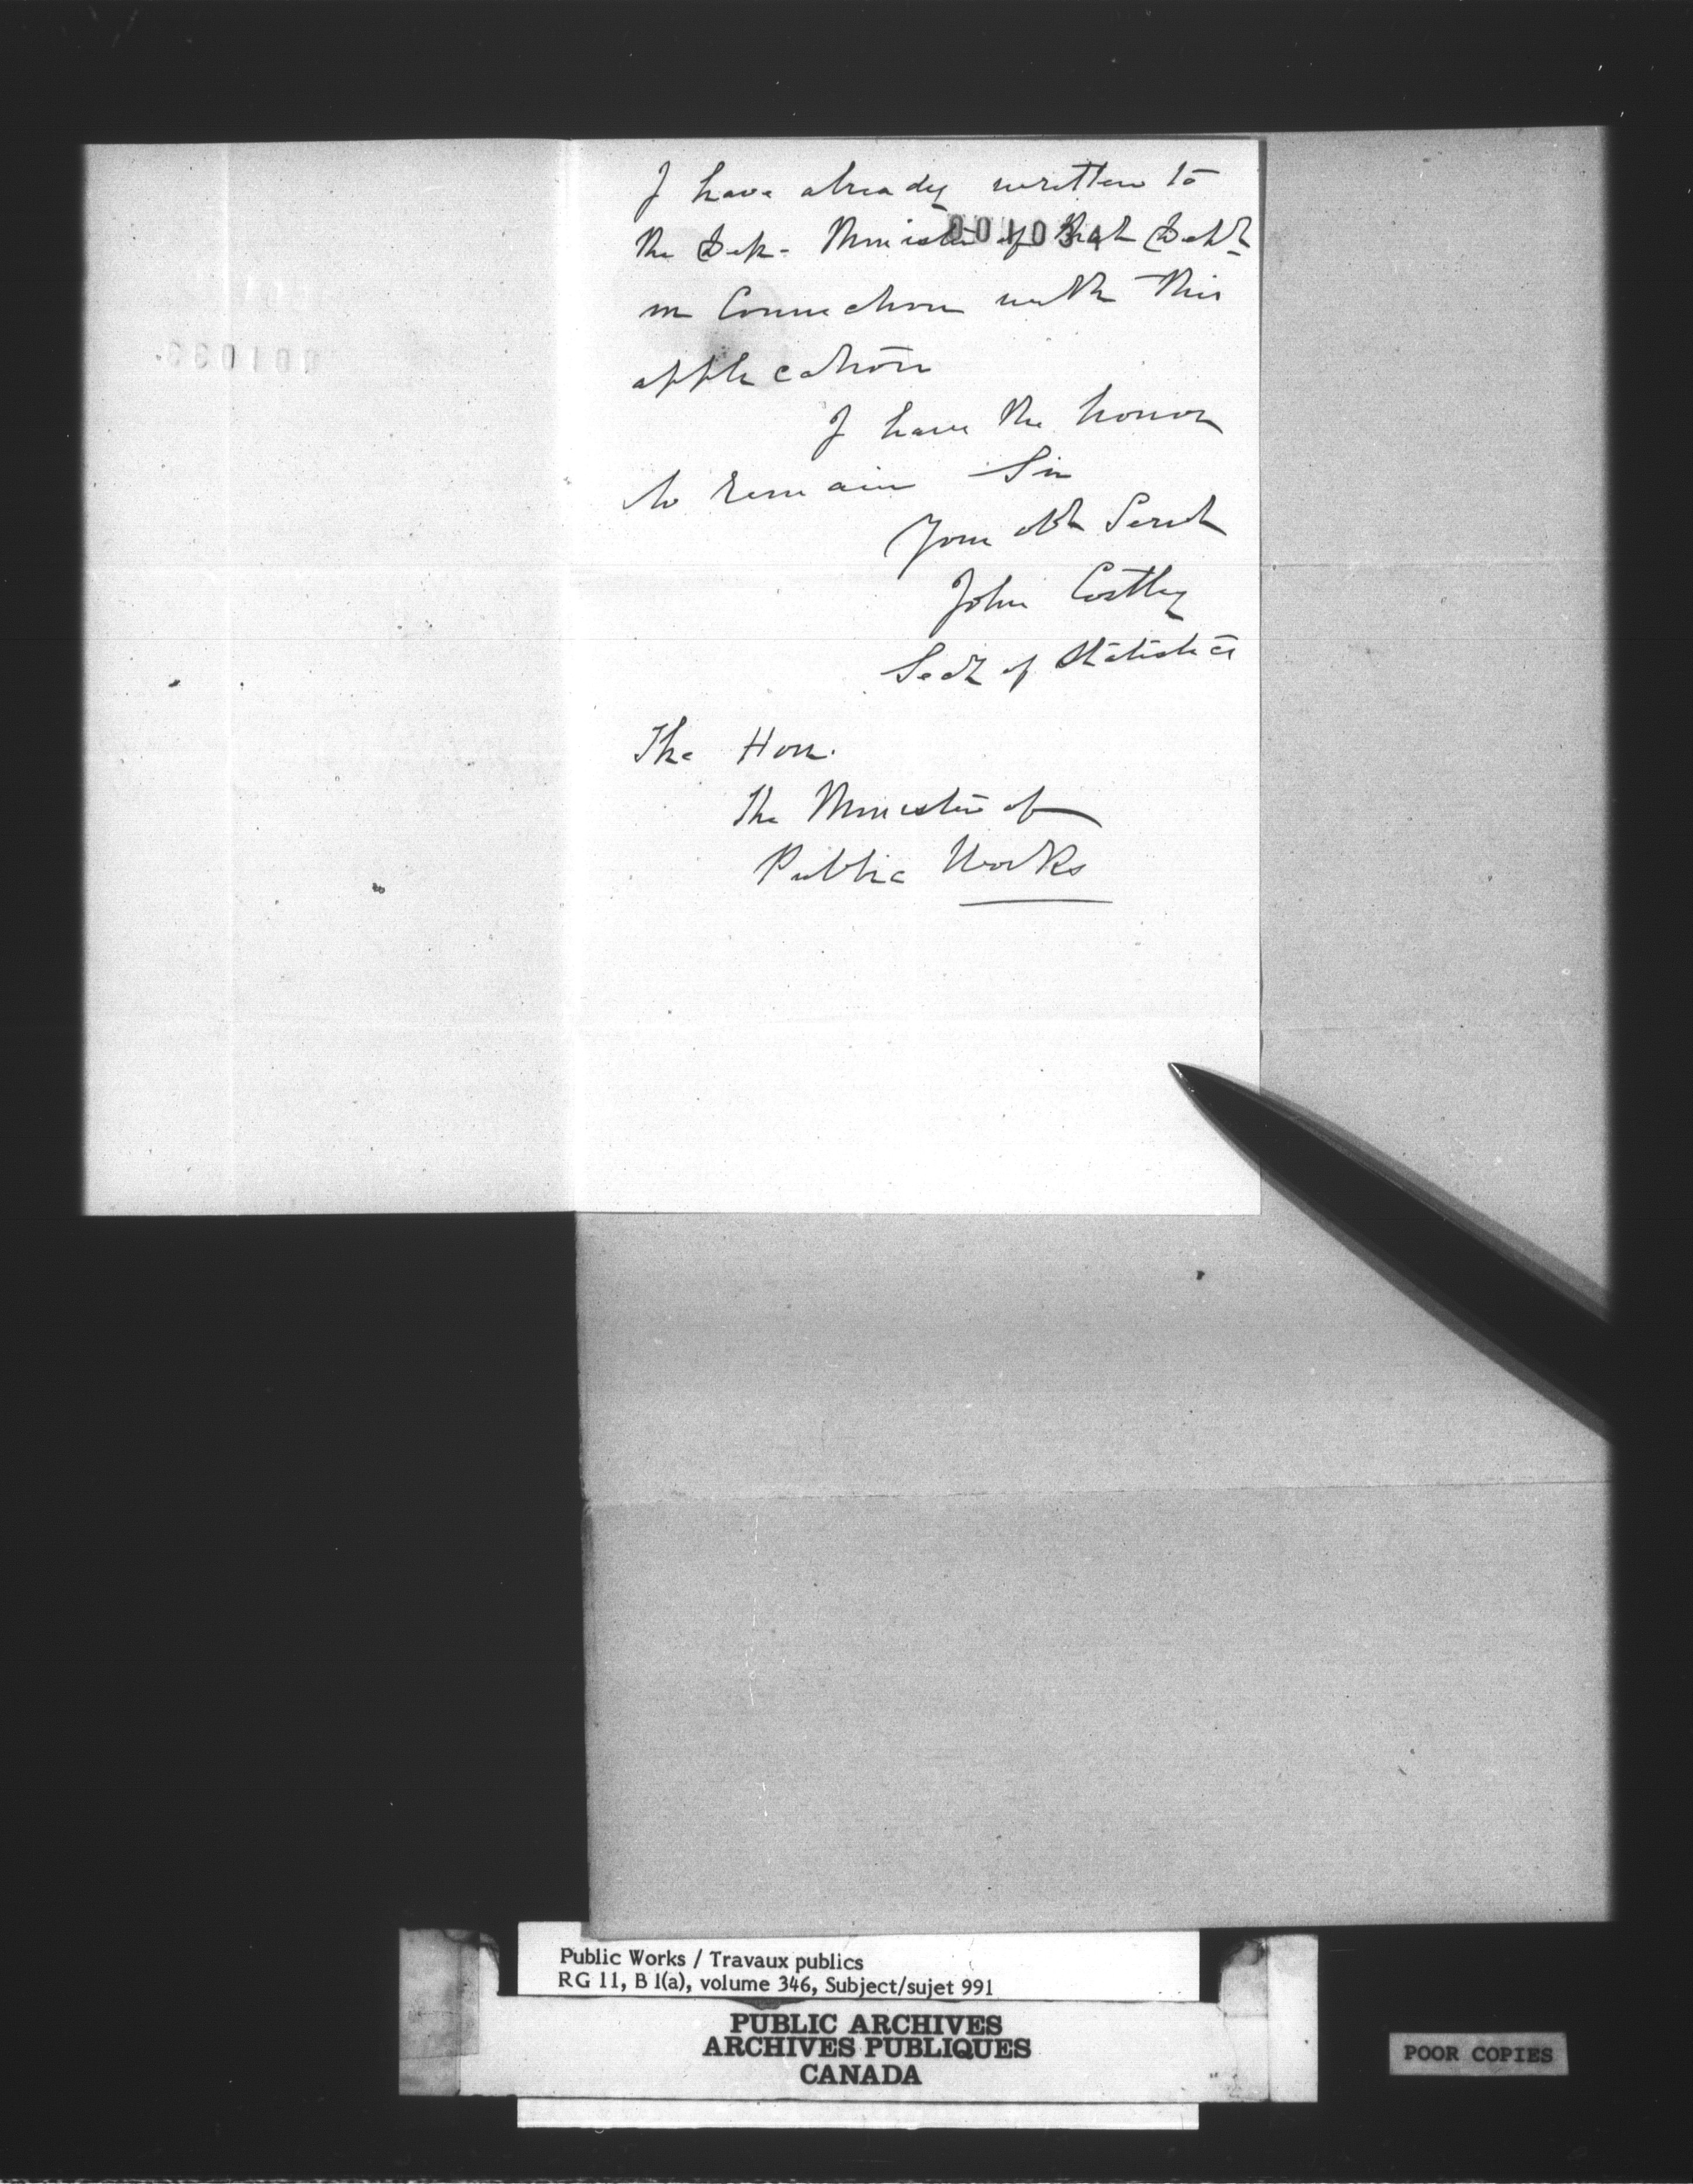 I have already written to
001034
the Dep. Minister of that Dept
in Connection with this
application
I have the honor
to remain Sir
Your obt Servt
John Costley
Secy of Statistics
The Hon.
The Minister of
Public Works
001033
Public Works / Travaux publics
RG 11, B 1(a), volume 346, Subject/sujet 991
PUBLIC ARCHIVES
ARCHIVES PUBLIQUES
CANADA
POOR COPIES